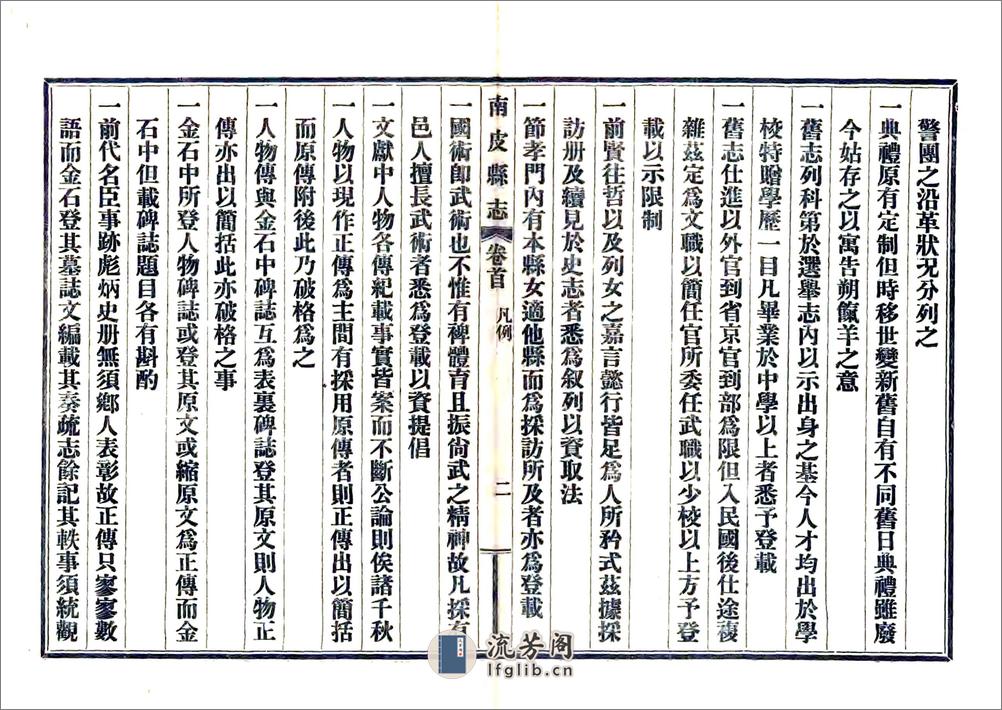 警團之沿革狀況分列之
一典禮原有定制但時移世變新舊自有不同舊日典禮雖廢
今姑存之以寓告朔餼羊之意
一舊志列科第於選舉志內以示出身之基今人才均出於學
校特贈學歷一目凡畢業於中學以上者悉予登載
一舊志仕進以外官到省京官到部爲限但入民國後仕途複
雜茲定爲文職以簡任官所委任武職以少校以上方予登
載以示限制
一前賢往哲以及列女之嘉言懿行皆足爲人所矜式茲據採
訪册及續見於史志者悉爲叙列以資取法
一節孝門內有本縣女適他縣而爲採訪所及者亦爲登載
南皮縣志 卷首 凡例 二
一國術卽武術也不惟有裨體育且振尙武之精神故凡採有
邑人擅長武術者悉爲登載以資提倡
一文獻中人物各傳紀載事實皆案而不斷公論則俟諸千秋
一人物以現作正傳爲主間有採用原傳者則正傳出以簡括
而原傳附後此乃破格爲之
一人物傳與金石中碑誌互爲表裏碑誌登其原文則人物正
傳亦出以簡括此亦破格之事
一金石中所登人物碑誌或登其原文或縮原文爲正傳而金
石中但載碑誌題目各有斟酌
一前代名臣事跡彪炳史册無須鄉人表彰故正傳只寥寥數
語而金石登其墓誌文編載其奏疏志餘記其軼事須統觀
流芳阁
lfglib.cn